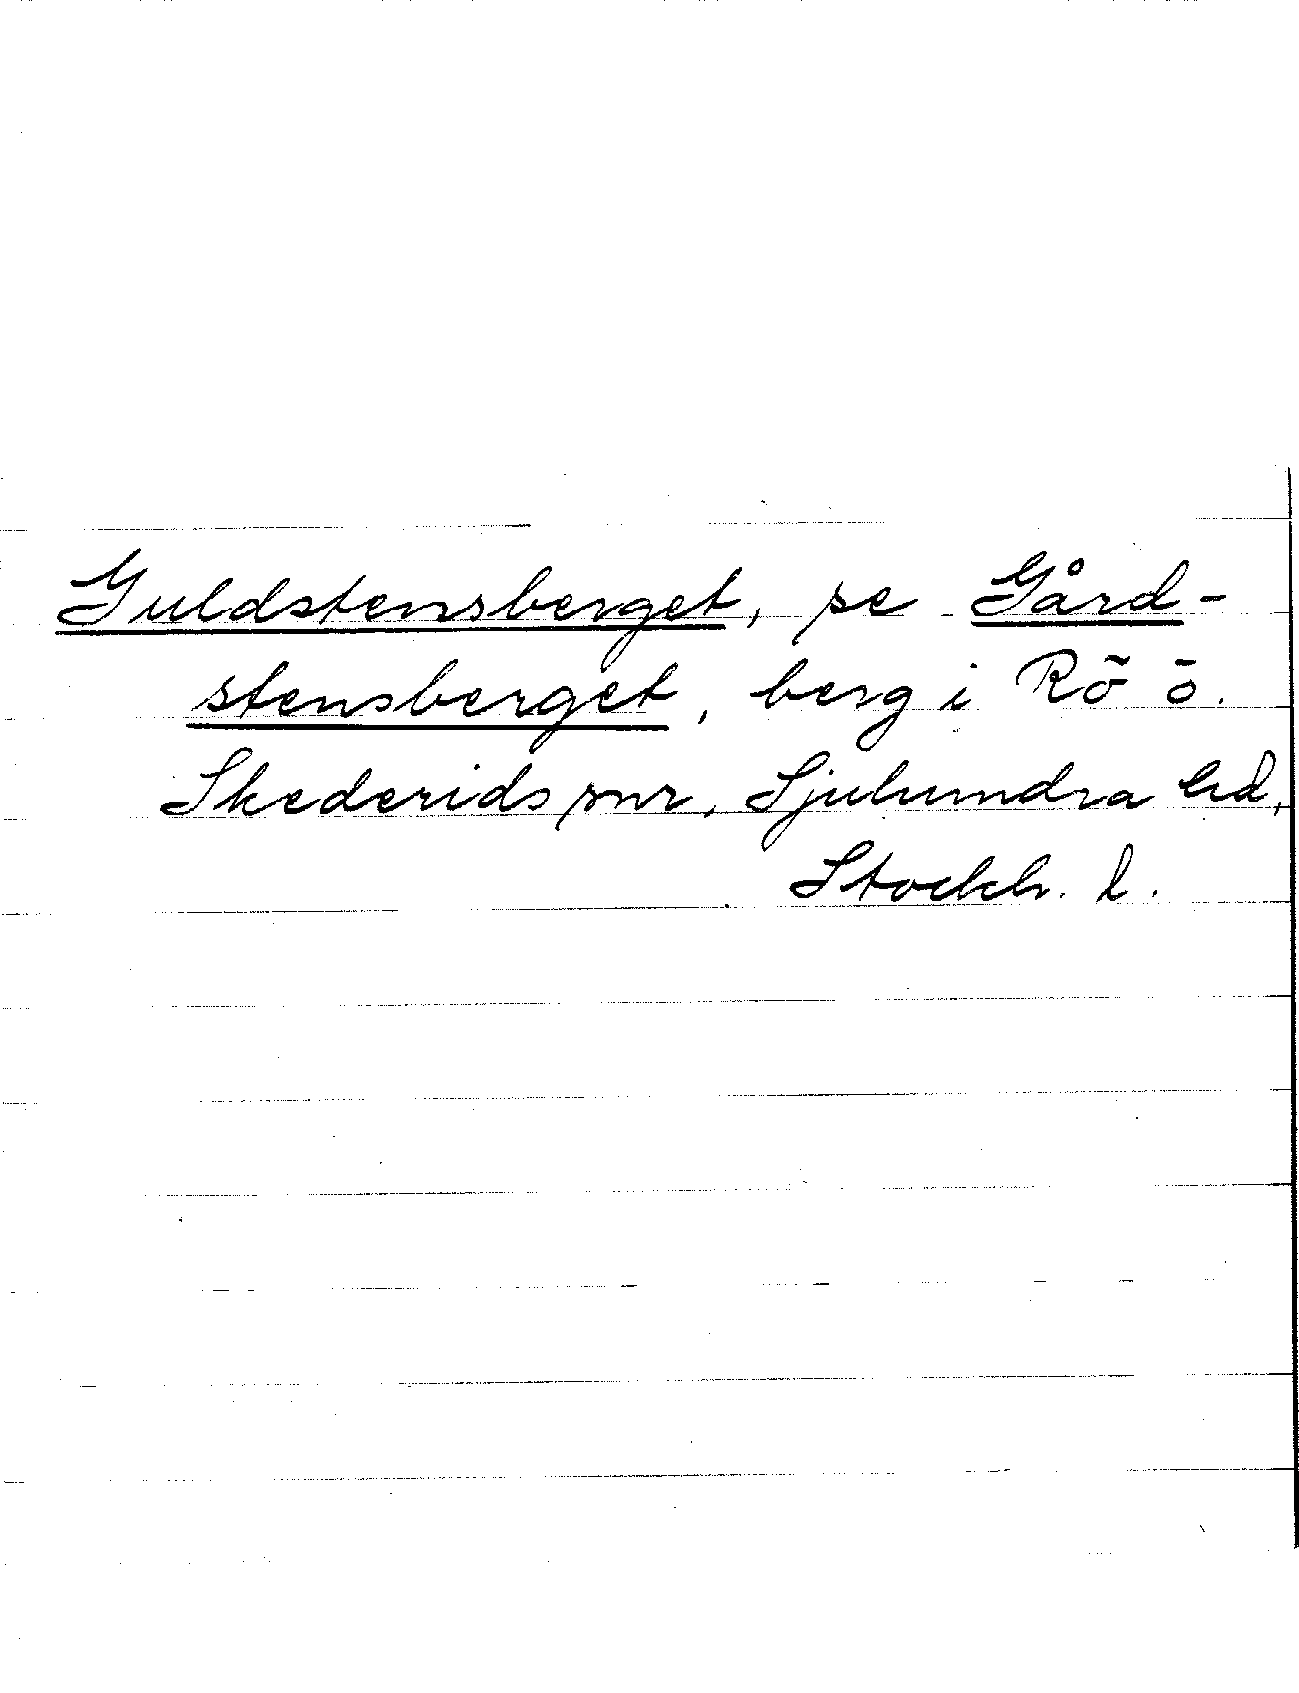 Guldstensberget, se Gård-
stensberget, berg i Rö o.
Skederids snr, Sjuhundra hd,
Stockh. l.